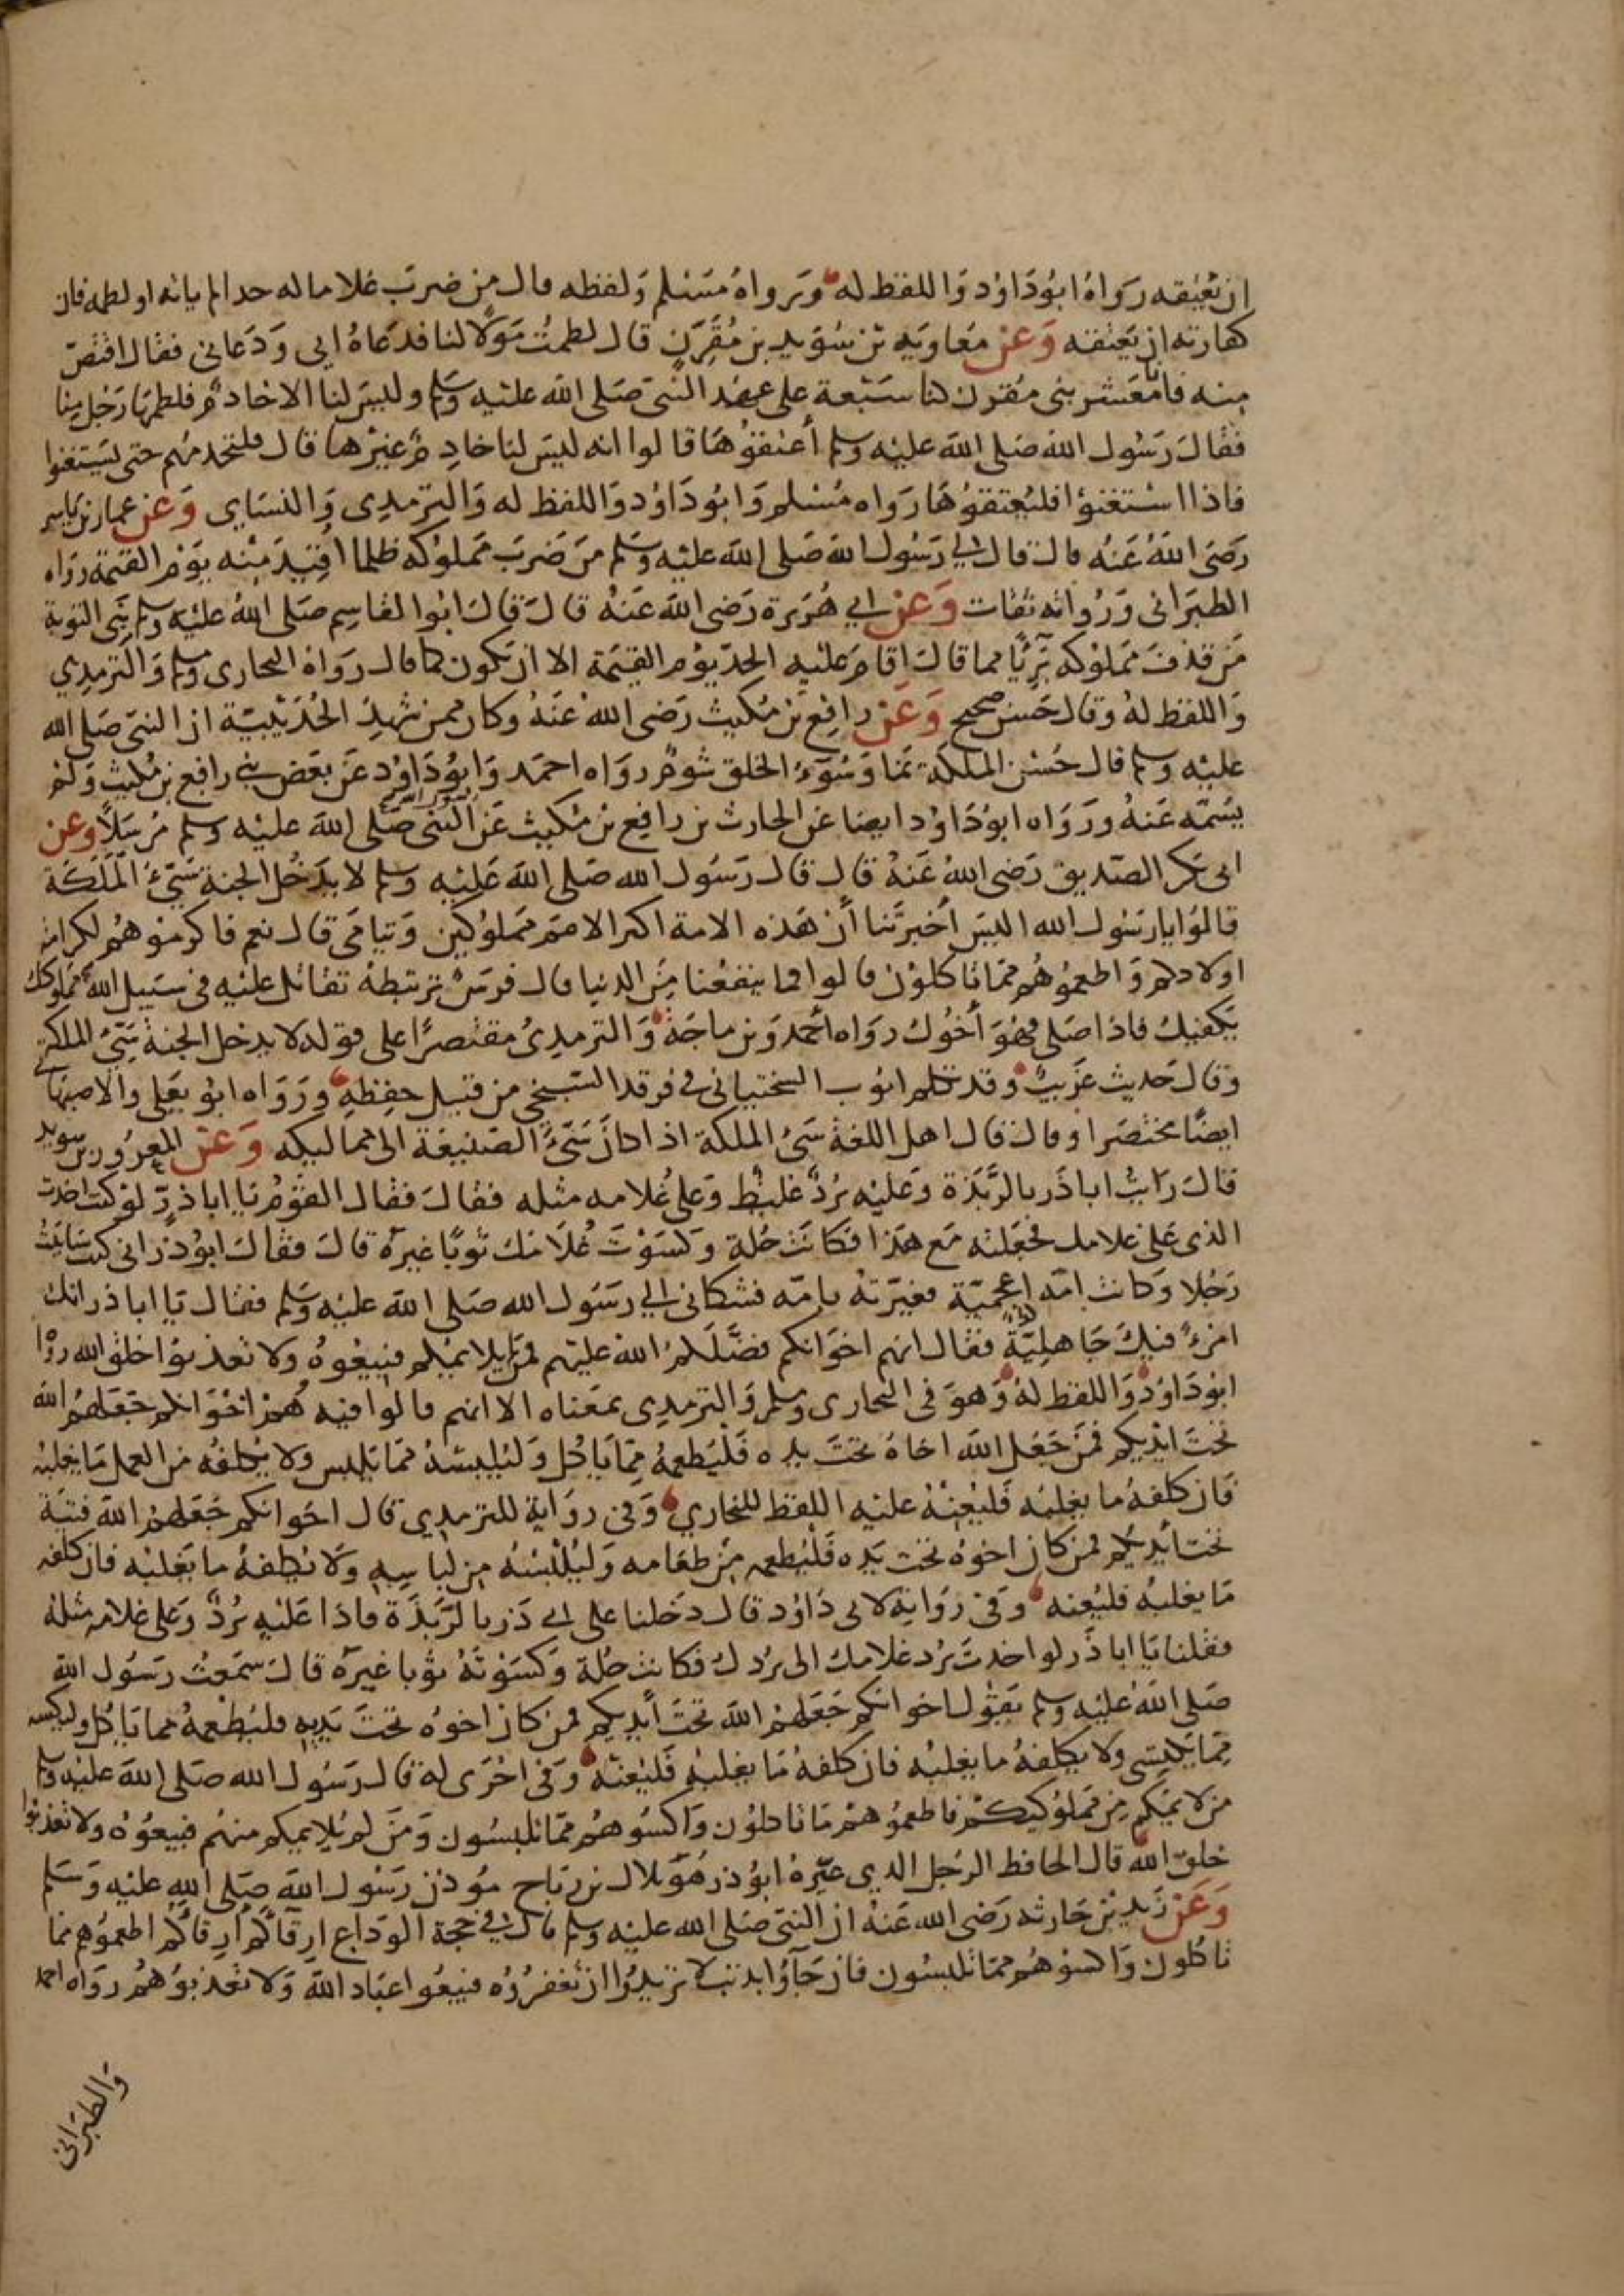 ان يعتقه رواه ابو داود واللفظ له ورواه مسلم ولفظه قال من ضرب غلاما له حدا لم ياته او لطمه فان
كفارته ان يعتقه وعن معاوية بن سويد بن مقرن قال لطمت مولا لنا فدعاه ابي ودعاني فقال اقتص
منه فانا معشر بني مقرن كنا سبعة على عهد النبي صلى الله عليه وسلم وليس لنا الا خادم فلطمها رجل منا
فقال رسول الله صلى الله عليه وسلم أعتقوها قالوا انه ليس لنا خادم غيرها قال فلتخدمهم حتى يستغنوا
فاذا استغنوا فليعتقوها رواه مسلم وابو داود واللفظ له والترمدي والنساي وعن عمار بن ياسر
رضى الله عنه قال قال لي رسول الله صلى الله عليه وسلم من ضرب مملوكه ظلما اقيد منه يوم القيمة رواه
الطبراني ورواته ثقات وعن ابي هريرة رضى الله عنه قال قال ابوا القاسم صلى الله عليه وسلم نبي التوبة
من قذف مملوكه بريًا مما قال اقام عليه الحد يوم القيمة الا ان يكون كما قال رواه البخارى ومسلم والترمدي
واللفظ له وقال حسن صحيح وعن رافع بن مكيث رضى الله عنه وكان ممن شهد الحديبية ان النبي صلى الله
عليه وسلم قال حسن الملكة نما وسوء الخلق شوم رواه احمد وابو داود عن بعض بني رافع بن مكيث ولم
يسمه عنه ورواه ابو داود ايضا عن الحارث بن رافع بن مكيث عن النبي صلى الله عليه وسلم مرسلا وعن
ابى بكر الصديق رضى الله عنه قال قال رسول الله صلى الله عليه وسلم لا يدخل الجنة سيئ الملكة
قالوا يا رسول الله اليس أخبرتنا أن هذه الامة اكثر الامم مملوكين ويتامى قال نعم فاكرموهم لكرامة
اولادكم واطعموهم مما تاكلون قالوا فما ينفعنا من الدنيا قال فرس ترتبطه تقاتل عليه في سبيل الله مملوكك
يكفيك فاذا صلى فهو أخوك رواه أحمد وبن ماجة والترمدي مقتصرا على قوله لا يدخل الجنة سيئ الملكة
وقال حديث غريب وقد تكلم ايوب السختياني في فرقد السبخي من قبل حفظه ورواه ابو يعلى والاصبهاني
ايضا مختصرا وقال قال اهل اللغة سيئ الملكة اذا كان سيئ الصنيعة الى مماليكه وعن المعرور بن سويد
قال رايت ابا ذر بالربذة وعليه برد غليظ وعلى غلامه مثله فقال فقال القوم يا ابا ذر لو كنت اخدت
الذي على غلامك فجعلته مع هذا فكانت حلة وكسوت غلامك ثوبًا غيره قال فقال ابو ذر اني كنت ساببت
رجلا وكانت امه اعجمية فعيرته بامه فشكاني الى رسول الله صلى الله عليه وسلم فقال يا ابا ذر انك
امرء فيك جاهلية فقال انهم اخوانكم فضلكم الله عليهم فمن لم يلايمكم فبيعوه ولا تعذبوا خلق الله رواه
ابو داود واللفظ له وهو في البخارى ومسلم والترمدى بمعناه الا انهم قالوا فيه هم اخوانكم جعلهم الله
تحت ايديكم فمن جعل الله اخاه تحت يده فليطعمه مما ياكل وليلبسه مما يلبس ولا يكلفه من العمل ما يغلبه
فان كلفه ما يغلبه فليعنه عليه اللفظ للبخاري وفي رواية للترمدي قال اخوانكم جعلهم الله فتية
تحت ايديكم فمن كان اخوه تحت يده فليطعمه من طعامه وليلبسه من لباسه ولا يكلفه ما يغلبه فان كلفه
ما يغلبه فليعنه وفي رواية لابى داود قال دخلنا على ابي ذر بالربذة فاذا عليه برد وعلى غلامه مثله
فقلنا يا ابا ذر لو اخدت برد غلامك الى بردك فكانت حلة وكسوته ثوبا غيره قال سمعت رسول الله
صلى الله عليه وسلم يقول اخوانكم جعلهم الله تحت أيديكم فمن كان اخوه تحت يديه فليطعمه مما ياكل وليكسه
مما يكتسى ولا يكلفه ما يغلبه فان كلفه ما يغلبه فليعنه وفي اخرى له قال رسول الله صلى الله عليه وسلم
من لايمكم من مملوكيكم فاطعموهم مما تاكلون واكسوهم مما تلبسون ومن لم يلايمكم منهم فبيعوه ولا تعذبوا
خلق الله قال الحافظ الرجل الدي عيره ابو ذر هو بلال بن رباح موذن رسول الله صلى الله عليه وسلم
وعن زيد بن حارثه رضى الله عنه ان النبي صلى الله عليه وسلم قال في حجة الوداع ارقاكم ارقاكم اطعموهم مما
تاكلون واكسوهم مما تلبسون فان جآؤا بدنب لا تريدوا ان تغفروه فبيعوا عباد الله ولا تعذبوهم رواه احمد
والطبراني